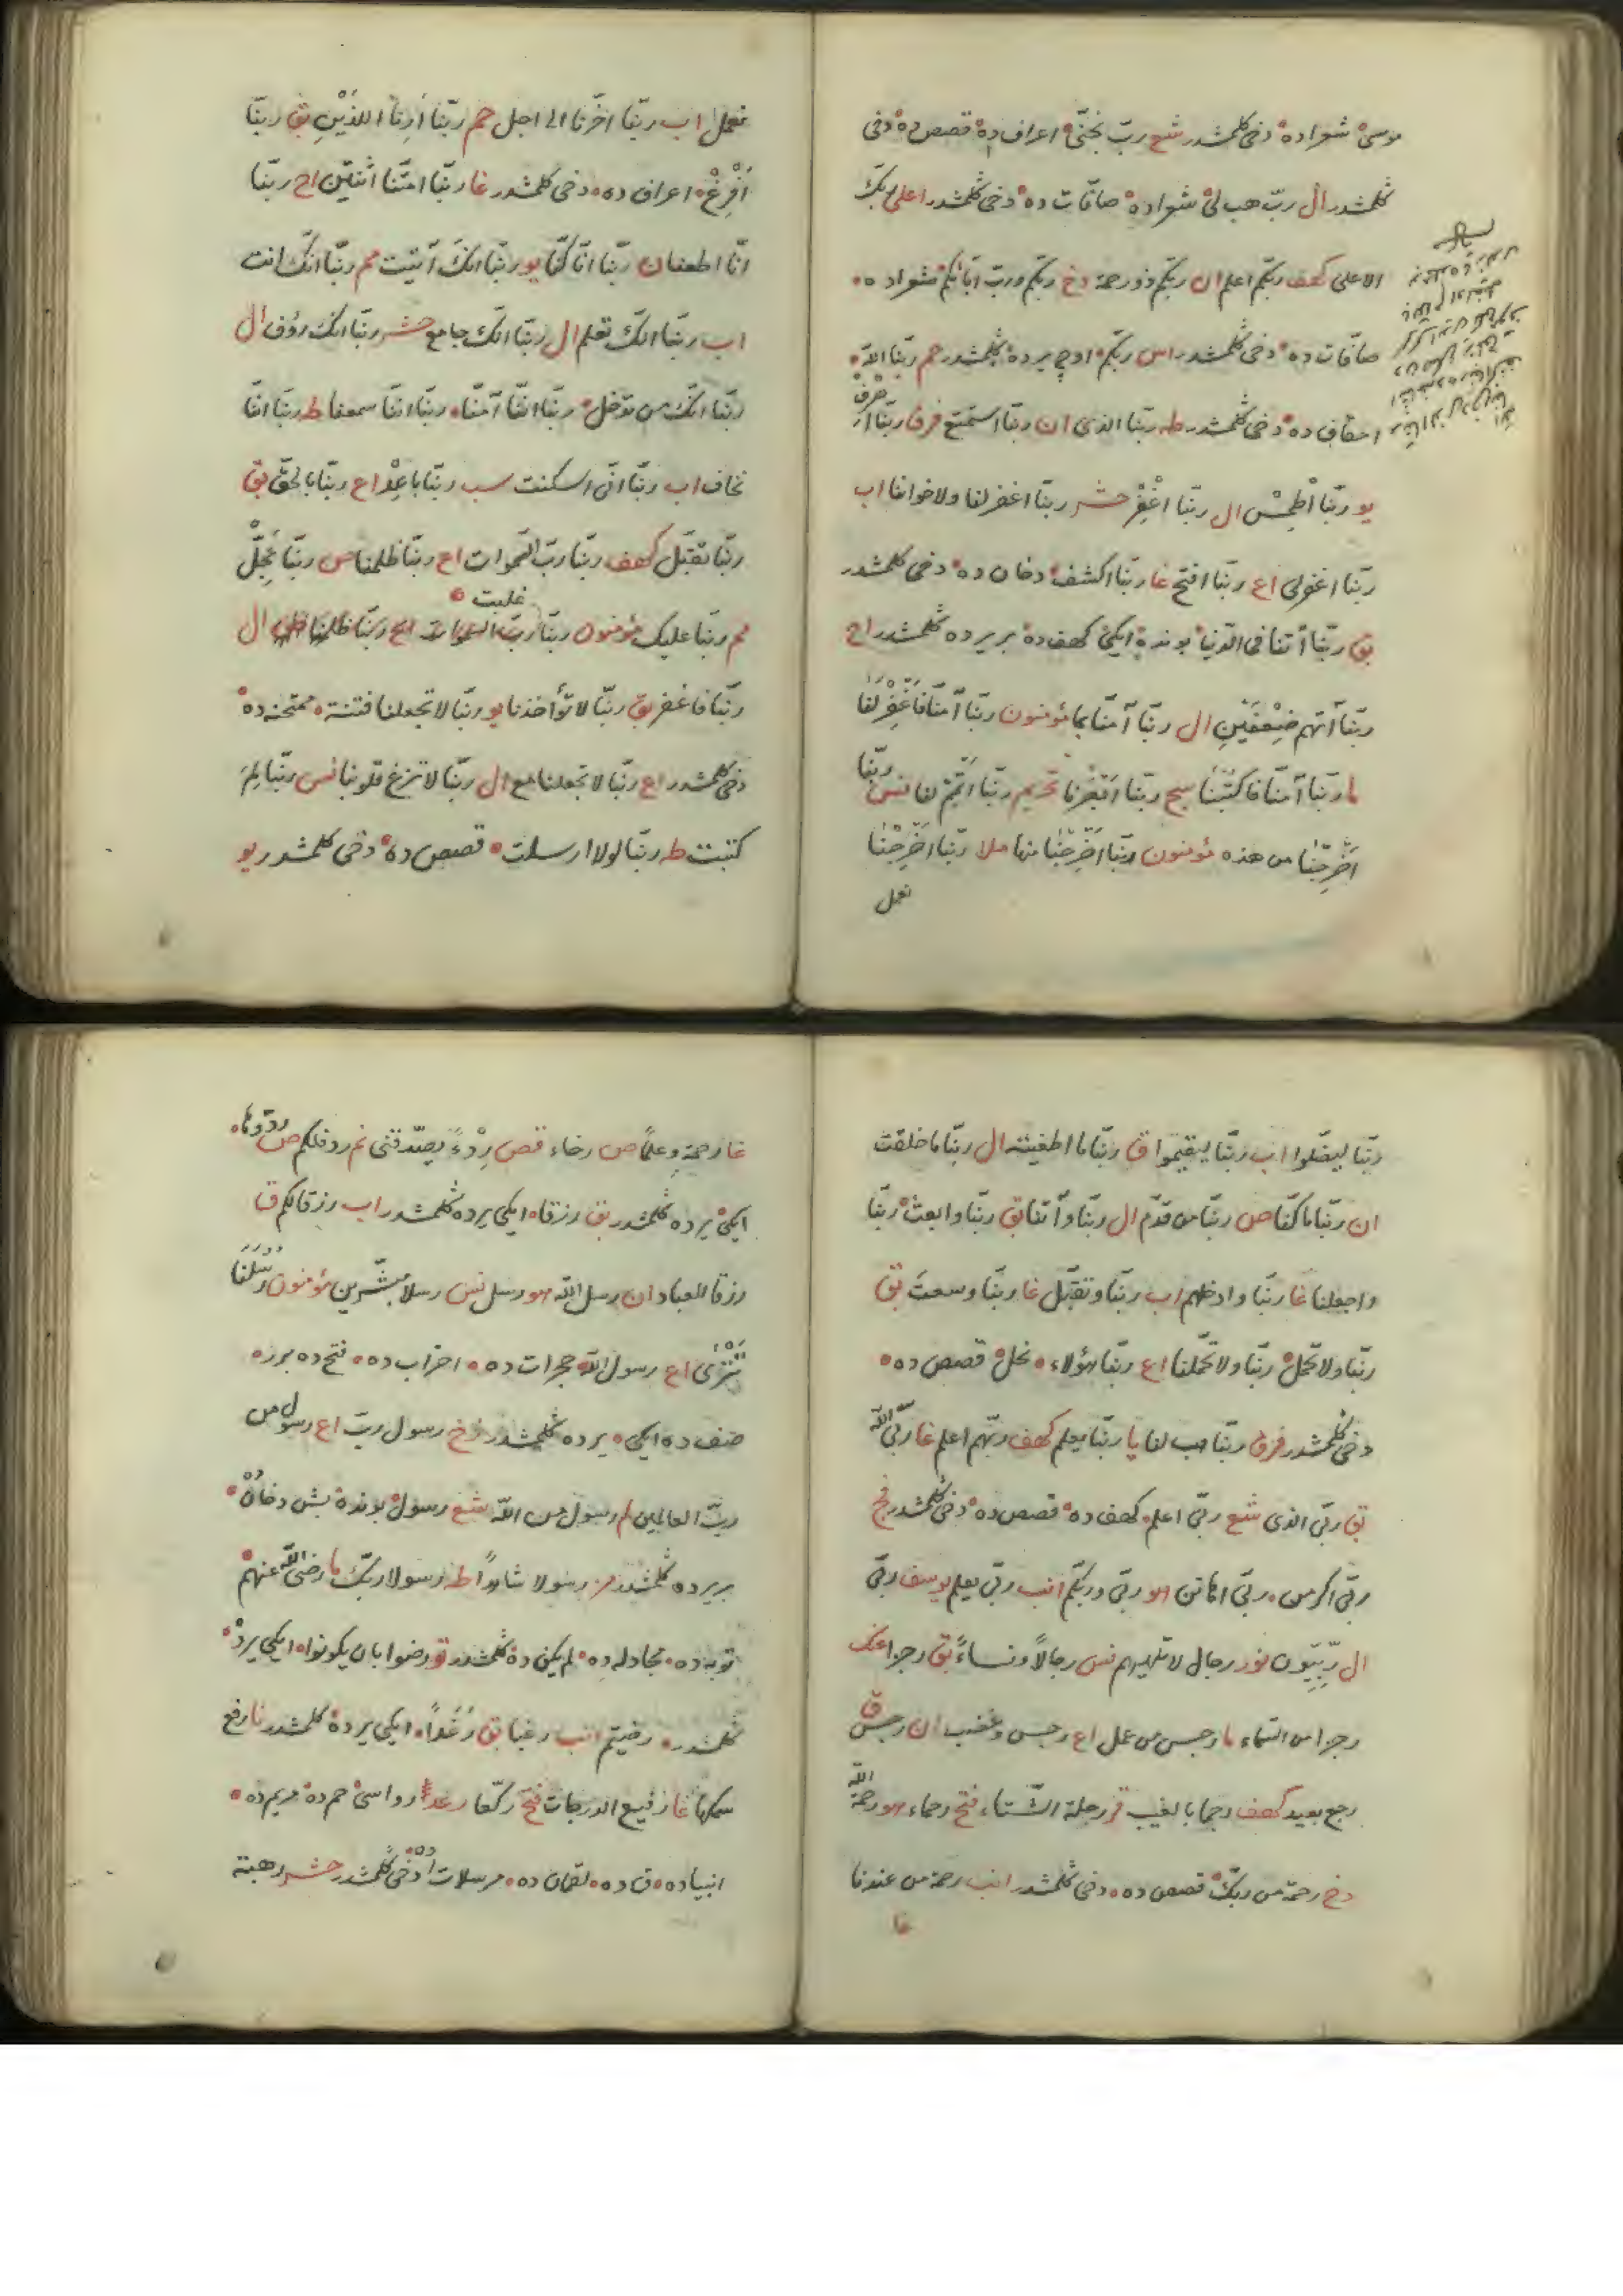 موسىٰ شعراده دخى كلمشدر شع ربّ نجنى اعراف ده قصص ده دخى
كلمشدر ال ربّ هب لى شعراده صافات ده دخى كلمشدر اعلى ربّك
الاعلى كهف ربّكم اعلم ان ربّكم ذو رحمة دخ ربّكم وربّ آبائكم شعراده
صافات ده دخى كلمشدر اس ربّكم اوچ يرده كلمشدر حم ربّنا الله
احقاف ده دخى كلمشدر طه ربّنا الذى ان ربّنا استمتع فرق ربّنا اصرف
يو ربّنا اطمس ال ربّنا اغفر حشر ربّنا اغفر لنا ولاخواننا اب
ربّنا اغفرلى اع ربّنا افتح غا ربّنا اكشف دخان ده دخى كلمشدر
بق ربّنا آتنا فى الدّنيا بونده ايكى كهف ده بر يرده كلمشدر اح
ربّنا آتهم ضعفين ال ربّنا آمنّا بما مؤمنون ربّنا آمنّا فاغفر لنا
ما ربّنا آمنّا فاكتبنا سج ربّنا ابصرنا تحريم ربّنا اتمم لنا نس ربّنا
اخرجنا من هذه مؤمنون ربّنا اخرجنا منها ملا ربّنا اخرجنا
نعمل
نعمل اب ربّنا اخّرنا الى اجل حم ربّنا ارنا اللذين بق ربّنا
افرغ اعراف ده دخى كلمشدر غا ربّنا امتّنا اثنتين اح ربّنا
انّا اطعنا ان ربّنا انّا كنّا يو ربّنا انك آتيت مم ربّنا انّك انت
اب ربّنا انّك تعلم ال ربّنا انّك جامع حشر ربّنا انك رؤف ال
ربّنا انّك من تدخل ربّنا انّنا آمنّا ربّنا انّنا سمعنا طه ربّنا انّنا
نخاف اب ربّنا انّى اسكنت سب ربّنا باعد اع ربّنا بالحقّ بق
ربّنا تقبّل كهف ربّنا ربّ السّموات اع ربّنا ظلمنا ص ربّنا عجّل
غلبت
مم ربّنا عليك مؤمنون ربّنا ال
ربّنا فاغفر بق ربّنا لا تؤاخذنا يو ربّنا لا تجعلنا فتنة ممتحنه ده
دخى كلمشدر اع ربّنا لا تجعلنا مع ال ربّنا لا تزغ قلوبنا نس ربّنا لم
كتبت طه ربّنا لولا ارسلت قصص ده دخى كلمشدر يو
ربّنا ليضلّوا اب ربّنا ليقيموا ق ربّنا ما اطغيته ال ربّنا ما خلقت
ان ربّنا ما كنّا ص ربّنا من قدّم ال ربّنا وآتنا بق ربّنا وابعث ربّنا
واجعلنا غا ربّنا وادخلهم اب ربّنا وتقبّل غا ربّنا وسعت بق
ربّنا ولا تحمل ربّنا ولا تحمّلنا اع ربّنا هؤلاء نحل قصص ده
دخى كلمشدر فرق ربّنا هب لنا يا ربّنا يعلم كهف ربّهم اعلم غا ربّى الله
بق ربّى الذى شع ربّى اعلم كهف ده قصص ده دخى كلمشدر فج
ربّى اكرمن ربّى اهانن هو ربّى وربّكم انب ربّى يعلم يوسف ربّى
ال ربّيّون نور رجال لا تلهيهم نس رجالاً ونساءً بق رجزا عنك
رجزا من السّماء ما رجس من عمل اع رجس وغضب ان رجس ق
رجع بعيد كهف رجما بالغيب قر رحلة الشّتاء فتح رحماء هو رحمة الله
دخ رحمة من ربّك قصص ده دخى كلمشدر انب رحمة من عندنا
غا
غا رحمة وعلمًا ص رخاء قصص ردءًا يصدّقنى نم ردف لكم ص ردّوها
ايكى يرده كلمشدر بق رزقا ايكى يرده كلمشدر اب رزقا لكم ق
رزقا للعباد ان رسل الله هو رسل نس رسلا مبشّرين مؤمنون رسلنا
تترى اع رسول الله حجرات ده احزاب ده فتح ده برر
صف ده ايكى يرده كلمشدر زخ رسول ربّ اع رسول من
ربّ العالمين لم رسول من الله شع رسول بونده بش دخان
بر يرده كلمشدر مز رسولا شاهدًا طه رسولا ربّك ما رضى الله عنهم
توبه ده مجادله ده لم يكن ده كلمشدر تو رضوا بان يكونوا ايكى يرده
كلمشدر رضيتم انب رغبا بق رغدًا ايكى يرده كلمشدر نا رفع
سمكها غا رفيع الدرجات فتح ركّعا رعد رواسى حم ده مريم ده
انبياده ق ده لقمان ده مرسلات ده دخى كلمشدر حشر رهبة